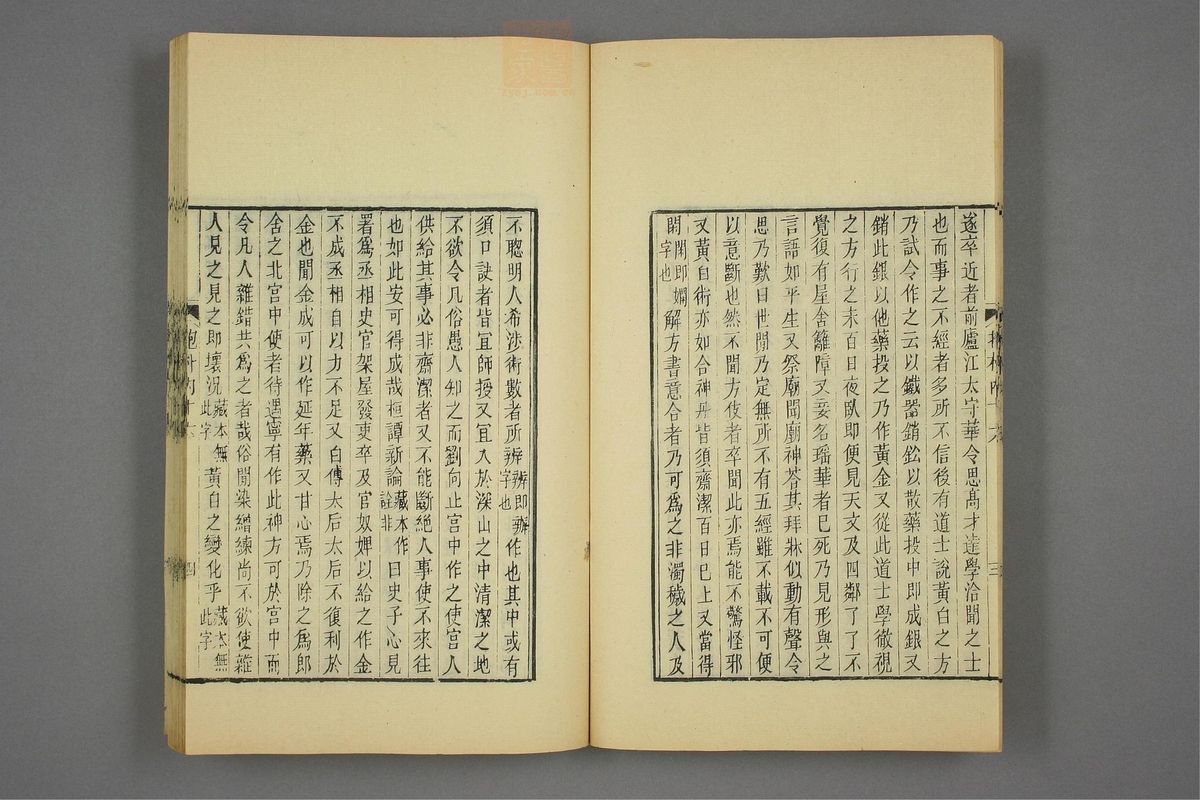 遂卒近者前廬江太守華令思高才達學洽聞之士
也而事之不經者多所不信後有道士說黃白之方
乃試令作之云以鐵器銷鉛以散藥投中卽成銀又
銷此銀以他藥投之乃作黃金又從此道士學徹視
之方行之未百日夜臥卽便見天文及四鄰了了不
覺復有屋舍籬障又妾名瑤華者已死乃見形與之
言語如平生又祭廟聞廟神荅其拜牀似動有聲令
思乃歎曰世閒乃定無所不有五經雖不載不可便
以意斷也然不聞方伎者卒聞此亦焉能不驚怪邪
又黃白術亦如合神丹皆須齋潔百日已上又當得
閑閑卽嫺字也解方書意合者乃可爲之非濁穢之人及
三
不聰明人希涉術數者所辨辨卽辦字也作也其中或有
須口訣者皆宜師授又宜入於深山之中清潔之地
不欲令凡俗愚人知之而劉向止宮中作之使宮人
供給其事必非齋潔者又不能斷絕人事使不來往
也如此安可得成哉桓譚新論藏本作詮非曰史子心見
署爲丞相史官架屋發吏卒及官奴婢以給之作金
不成丞相自以力不足又白傅太后太后不復利於
金也聞金成可以作延年藥又甘心焉乃除之爲郎
舍之北宮中使者待遇寧有作此神方可於宮中而
令凡人雜錯共爲之者哉俗閒染繒練尚不欲使雜
人見之見之卽壞況藏本無此字黃白之變化乎藏本無此字
四